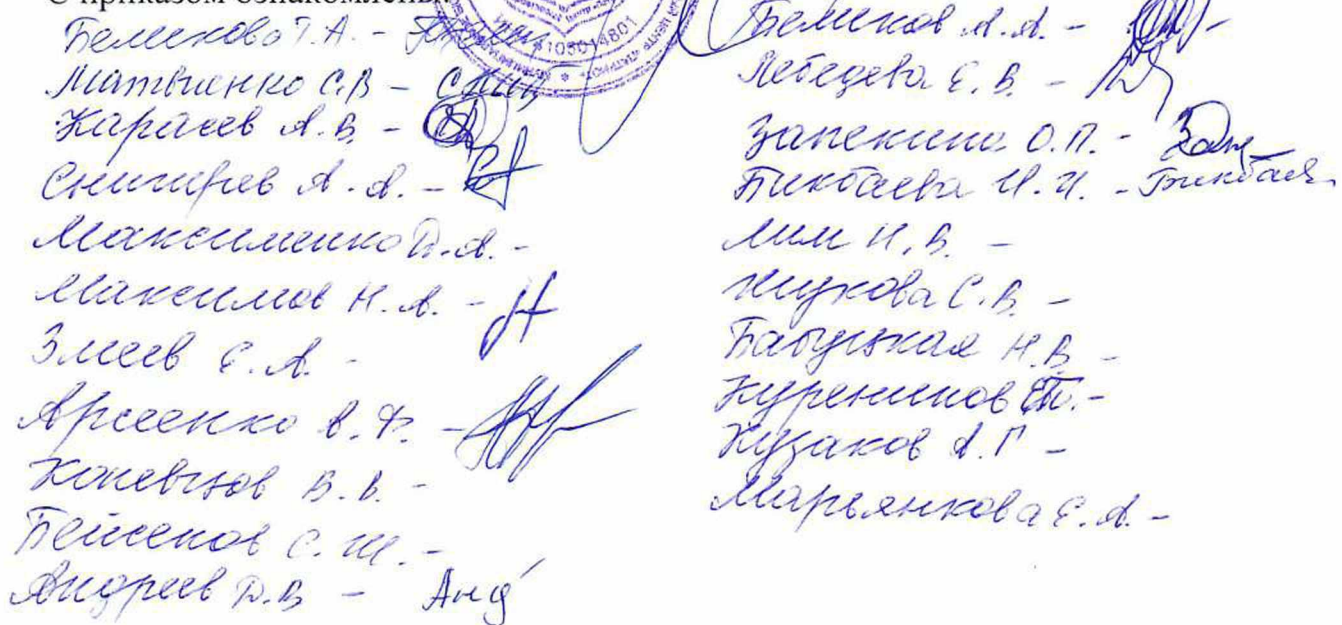 С приказом ознакомлены:
Беликова Т.А. -
Матвиенко С.В -
Карасев А.В. -
Снигирев А.А. -
Максименко Д.А. -
Максимов Н.А. -
Змеев Е.А. -
Арсеенко В.Ф. -
Коневцов В.В. -
Бейсенов С.Ш. -
Андреев Д.В -
Беликов А.А. -
Лебедева Е.В. -
Запекина О.П. -
Бикбаева И.И. - Бикбаева
Лим Н.В. -
Жукова С.В. -
Бабуцкая Н.В -
Куреников -
Кузаков А.Г -
Марьянкова Е.А. -